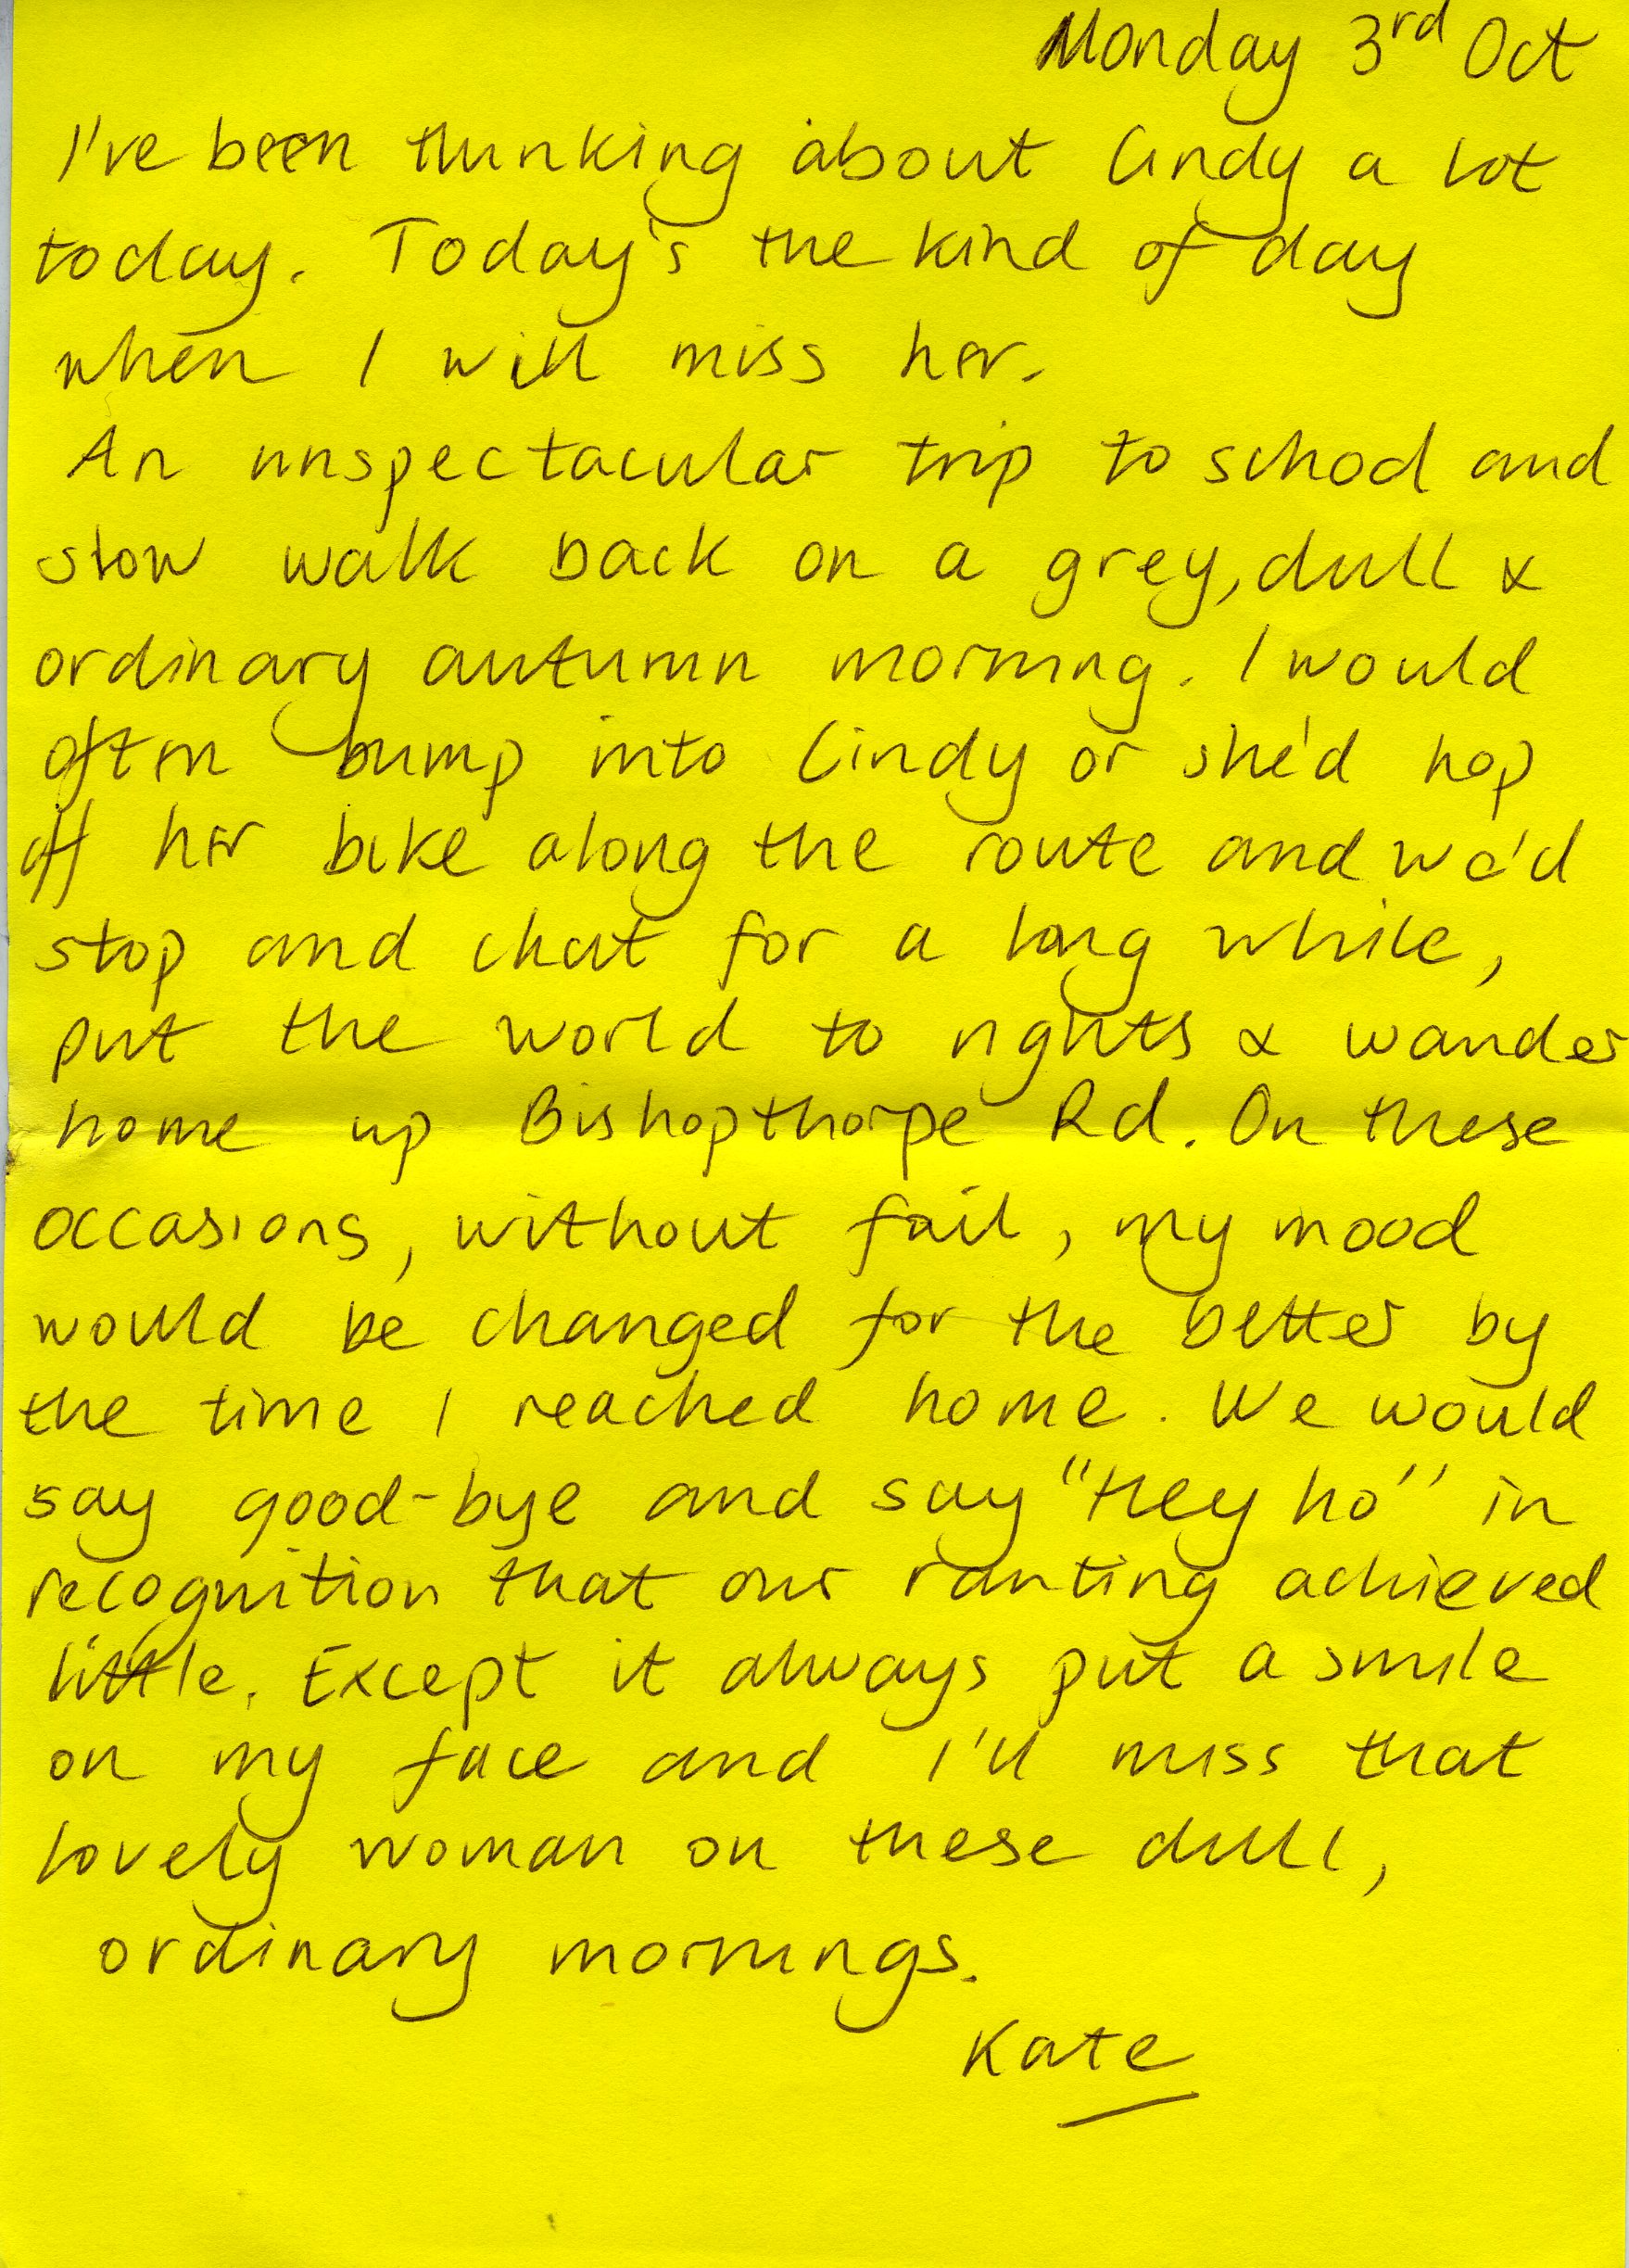 Monday 3rd Oct
I've been thinking about Cindy a lot
today. Today's the kind of day
when I will miss her.
An unspectacular trip to school and
slow walk back on a grey, dull &
ordinary autumn morning. I would
often bump into Cindy or she'd hop
off her bike along the route and we'd
stop and chat for a long while,
put the world to rights & wander
home up Bishopthorpe Rd. On these
occasions, without fail, my mood
would be changed for the better by
the time I reached home. We would
say good-bye and say "Hey ho" in
recognition that our ranting achieved
little. Except it always put a smile
on my face and I'll miss that
lovely woman on these dull,
ordinary mornings.
Kate